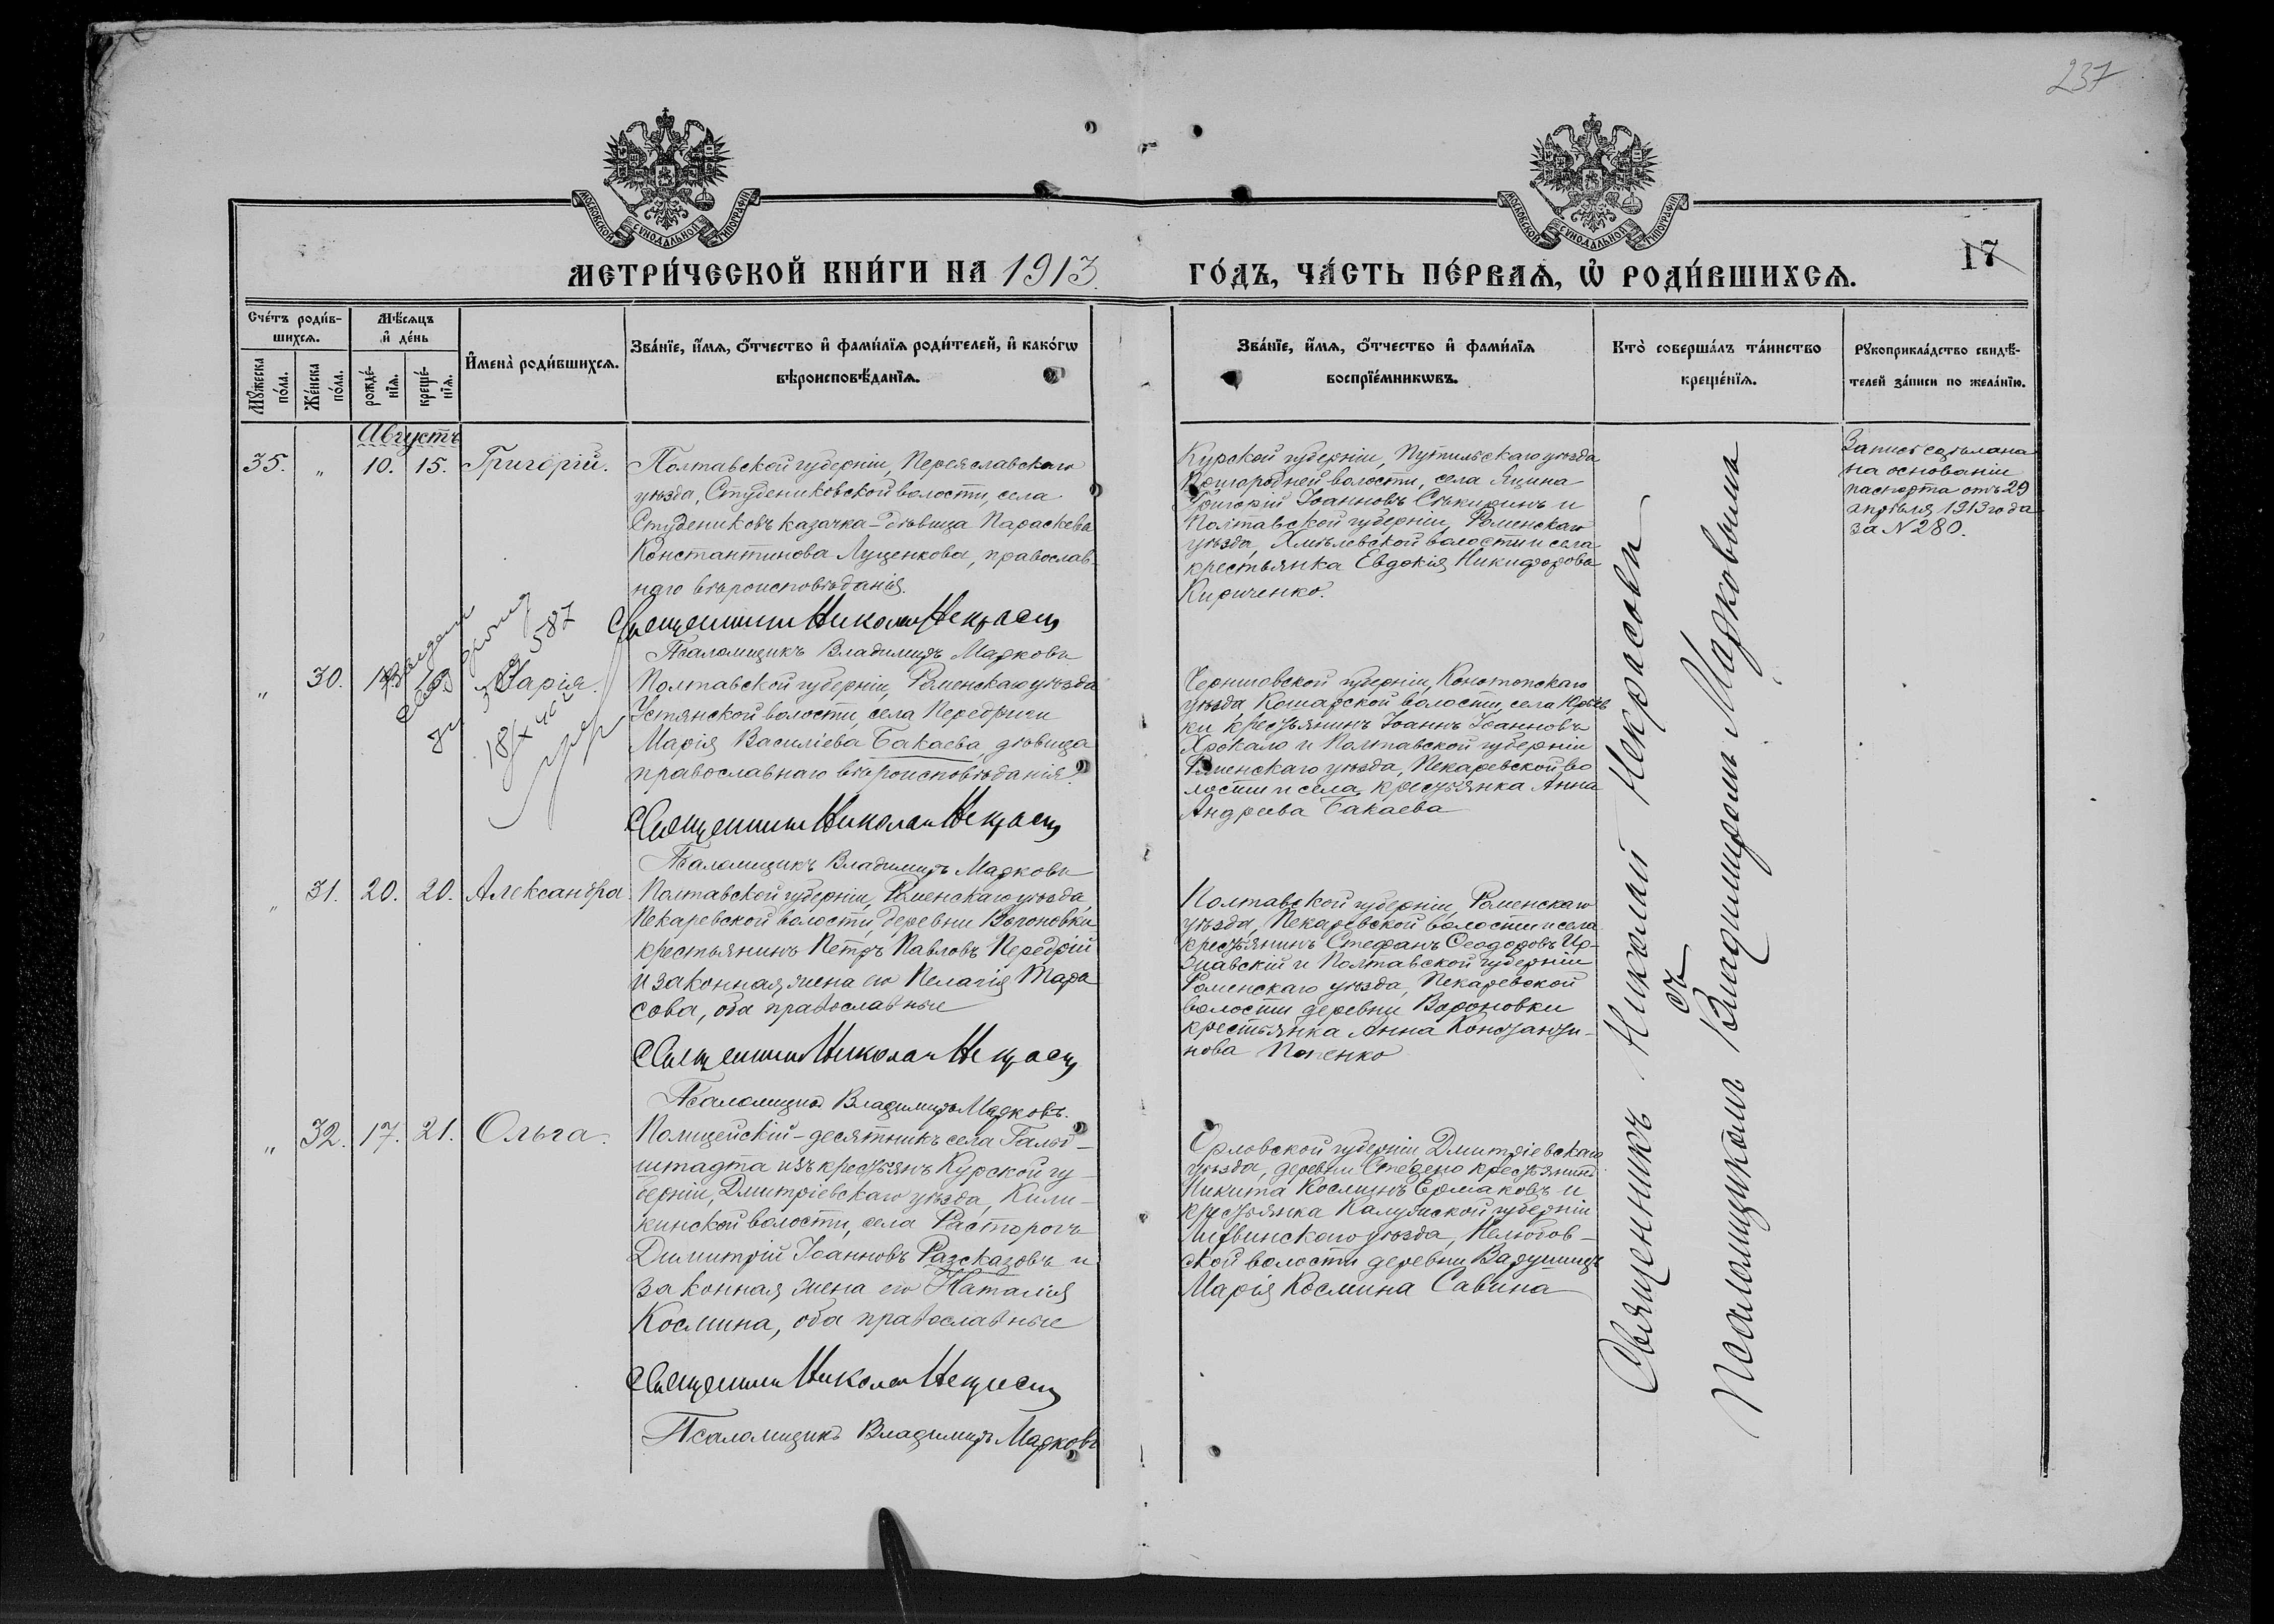 237
МОСКОВСКОЙ СУНОДАЛЬНОЙ ТИПОГРАФІИ
МОСКОВСКОЙ СУНОДАЛЬНОЙ ТИПОГРАФІИ
17
МЕТРИ́ЧЕСКОЙ КНИ́ГИ НА 1913
ГО́ДЪ, ЧА́СТЬ ПЕ́РВАѦ, Ѽ РОДИ́ВШИХСѦ.
Сче́тъ роди́в-
шихсѧ.
Мѣ́сѧцъ
и҆ де́нь
Мꙋ́жеска
по́ла.
Же́нска
по́ла.
рожде́-
нїѧ.
креще́-
нїѧ.
И҆мена̀ роди́вшихсѧ.
Зва́нїе, и҆́мѧ, ѻ҆́тчество и҆ фами́лїѧ роди́телей, и҆ како́гѡ
вѣроисповѣ́данїѧ.
Зва́нїе, и҆́мѧ, ѻ҆́тчество и҆ фами́лїѧ
воспрїе́мникѡвъ.
Кто̀ соверша́лъ та́инство
креще́нїѧ.
Рꙋкоприкла́дство свидѣ́-
телей за́писи по жела́нїю.
Августъ
35. „ 10. 15. Григорій.
Полтавской губерніи, Переяславскаго
уѣзда, Студениковской волости, села
Студениковъ казачка-дѣвица Параскева
Константинова Луценкова, православ-
наго вѣроисповѣданія.
Священникъ Николай Некрасовъ
Псаломщикъ Владимиръ Марковъ
Курской губерніи, Путивльскаго уѣзда
Пригородней волости, села Яцина
Григорій Іоанновъ и
Полтавской губерніи, Роменскаго
уѣзда, Хмѣлевской волости и села
крестьянка Евдокія Никифорова
Кириченко.
Запись сдѣлана
на основаніи
паспорта отъ 29
апрѣля 1913 года
за N 280.
„ 30. Марія.
587
Полтавской губерніи, Роменскаго уѣзда
Устянской волости, села
Марія Василіева Бакаева, дѣвица
православнаго вѣроисповѣданія.
Священникъ Николай Некрасовъ
Псаломщикъ Владимиръ Марковъ
Черниговской губерніи, Конотопскаго
уѣзда Кошарской волости, села
ки крестьянинъ Іоаннъ Іоанновъ
Хрокало и Полтавской губерніи
Роменскаго уѣзда, Пекаревской во
лости и села, крестьянка Анна
Андреева Бакаева
„ 31. 20. 20. Александра
Полтавской губерніи, Роменскаго уѣзда,
Пекаревской волости, деревни Вороновки
крестьянинъ Петръ Павловъ Передрій
и законная жена его Пелагія Тара
сова, оба православные
Священникъ Николай Некрасовъ
Псаломщикъ Владимиръ Марковъ.
Полтавской губерніи, Роменскаго
уѣзда, Пекаревской волости и села
крестьянинъ Стефанъ Ѳеодоровъ Ир-
злавскій и Полтавской губерніи
Роменскаго уѣзда, Пекаревской
волости деревни Вороновки
крестьянка Анна Константи-
нова Попенко
„ 32. 17. 21. Ольга.
Полицейскій-десятникъ села Гальб-
штадта изъ крестьянъ Курской гу-
берніи, Дмитріевскаго уѣзда, Кили-
кинской волости, села Расторогъ
Димитрій Іоанновъ Разсказовъ и
законная жена его Наталія
Космина, оба православные
Священникъ Николай Некрасовъ
Псаломщикъ Владимиръ Марковъ
Орловской губерніи Дмитріевскаго
уѣзда, деревни крестьянинъ
Никита Косминъ Ермаковъ и
крестьянка Калужской губерніи
Лихвинскаго уѣзда,
ской волости деревни
Марія Космина Савина
Священникъ Николай Некрасовъ
съ
Псаломщикомъ Владимиромъ Марковымъ